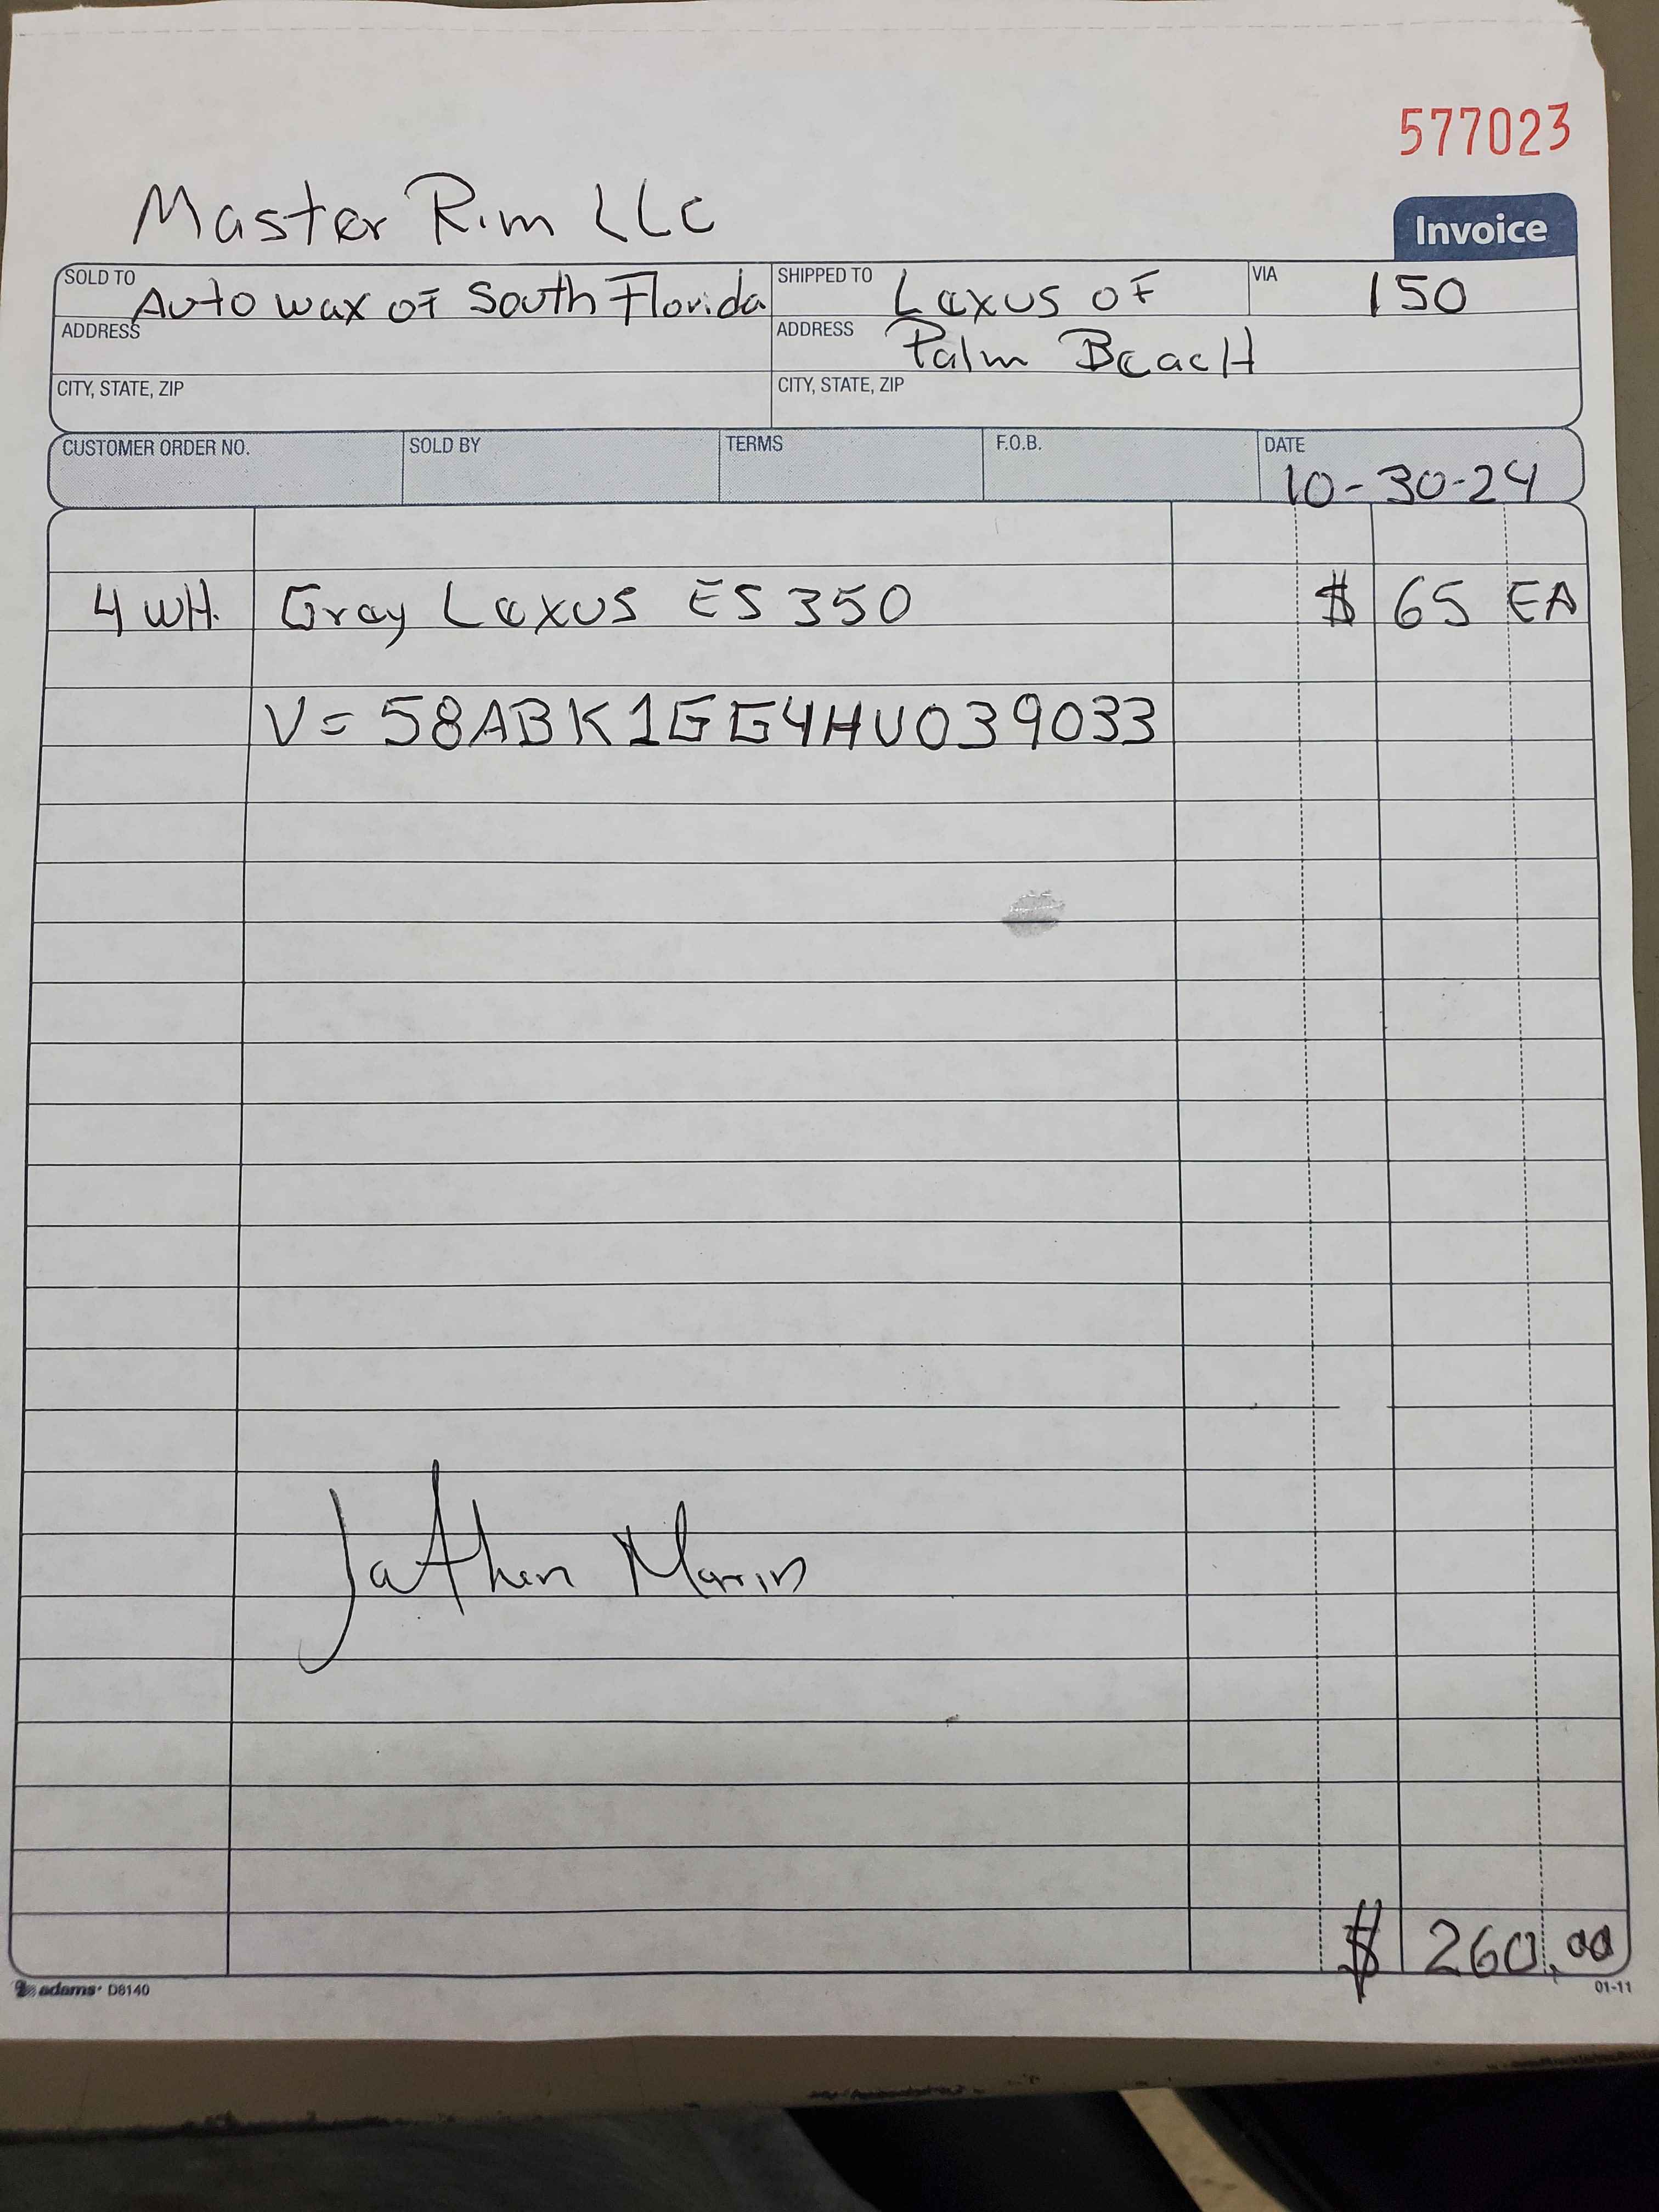 577023
Master Rim LLC
Invoice
SOLD TO Auto wax of South Florida
SHIPPED TO Lexus of
VIA 150
ADDRESS
ADDRESS Palm Beach
CITY, STATE, ZIP
CITY, STATE, ZIP
CUSTOMER ORDER NO. SOLD BY TERMS F.O.B. DATE
10-30-24
4 WH. Gray Lexus ES 350 $ 65 EA
V= 58ABK1GG4HU039033
Jathen Marin
$ 260.00
adams D8140 01-11